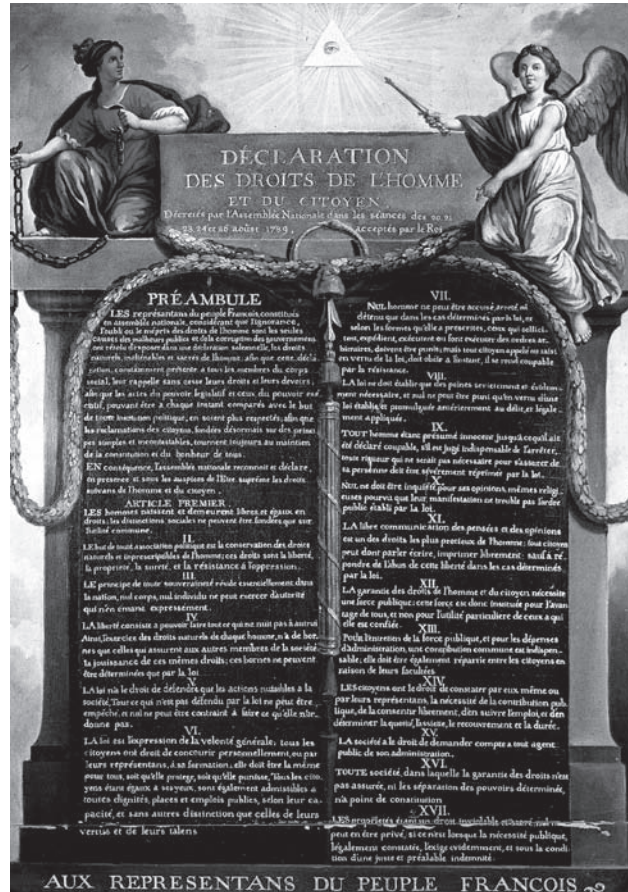 DÉCLARATION
DES DROITS DE L'HOMME
ET DU CITOYEN,
Décretés par l'Assemblée Nationale dans les séances des 20. 21
23. 24 et 26 août 1789, acceptés par le Roi
PRÉAMBULE
LES représentans du peuple François, constitués
en assemblée nationale, considérant que l'ignorance,
l'oubli ou le mépris des droits de l'homme sont les seules
causes des malheurs publics et de la corruption des gouvernemens
ont résolu d'exposer dans une déclaration solemnelle, les droits
naturels, inaliénables et sacrés de l'homme; afin que cette décla-
ration, constamment présente a tous les membres du corps
social, leur rappelle sans cesse leurs droits et leurs devoirs;
afin que les actes du pouvoir législatif et ceux du pouvoir exé-
cutif, pouvant être à chaque instant comparés avec le but
de toute institution politique, en soient plus respectés; afin que
les réclamations des citoyens, fondées désormais sur des prin-
cipes simples et incontestables, tournent toujours au maintien
de la constitution et du bonheur de tous.
EN conséquence, l'assemblée nationale reconnoit et déclare,
en presence et sous les auspices de l'Etre suprême les droits
suivans de l'homme et du citoyen.
ARTICLE PREMIER.
LES hommes naissent et demeurent libres et égaux en
droits. les distinctions sociales ne peuvent être fondées que sur
l'utilité commune.
II.
LE but de toute association politique est la conservation des droits
naturels et imprescriptibles de l'homme; ces droits sont la liberté,
la propriete, la sureté, et la résistance à l'oppression.
III.
LE principe de toute souveraineté réside essentiellement dans
la nation, nul corps, nul individu ne peut exercer d'autorité
qui n'en émane expressement.
IV
LA liberté consiste a pouvoir faire tout ce qui ne nuit pas à autrui
Ainsi, l'exercice des droits naturels de chaque homme, n'a de bor-
nes que celles qui assurent aux autres membres de la société
la jouissance de ces mêmes droits; ces bornes ne peuvent
être déterminées que par la loi
V.
LA loi n'a le droit de défendre que les actions nuisibles a la
société. Tout ce qui n'est pas défendu par la loi ne peut être
empêché, et nul ne peut être contraint à faire ce qu'elle n'or-
donne pas.
VI.
LA loi est l'expression de la volonté générale; tous les
citoyens ont droit de concourir personnellement, ou par
leurs représentans, à sa formation; elle doit être la même
pour tous, soit qu'elle protege, soit qu'elle punisse, Tous les cito-
yens étant égaux à ses yeux, sont également admissibles a
toutes dignités, places et emplois publics, selon leur ca-
pacité, et sans autres distinction que celles de leurs
vertus et de leurs talens
VII.
NUL homme ne peut être accusé, arreté, ni
détenu que dans les cas déterminés par la loi, et
selon les formes qu'elle a prescrites, ceux qui sollici-
tent, expédient, exécutent ou font exécuter des ordres ar-
bitraires, doivent être punis; mais tout citoyen appelé ou saisi
en vertu de la loi, doit obéir a l'instant, il se rend coupable
par la résistance.
VIII.
LA loi ne doit établir que des peines strictement et évidem-
ment nécessaire, et nul ne peut être puni qu'en vertu d'une
loi établie, et promulguée antérierement au délit, et légale-
ment appliquée.
IX.
TOUT homme étant présumé innocent jusqu'a ce qu'il ait
été déclaré coupable, s'il est jugé indispensable de l'arrêter,
toute rigueur qui ne serait pas nécessaire pour s'assurer de
sa personne doit être sévèrement réprimée par la loi.
X.
NUL ne doit être inquiété pour ses opinions, mêmes religi-
euses pourvu que leur manifestation ne trouble pas l'ordre
public établi par la loi.
XI.
LA libre communication des pensées et des opinions
est un des droits les plus precieux de l'homme: tout citoyen
peut dont parler écrire, imprimer librement: sauf à ré-
pondre de l'abus de cette liberté dans les cas déterminés
par la loi.
XII.
LA garantie des droits de l'homme et du citoyen nécessite
une force publique; cette force est donc instituée pour l'avan-
tage de tous, et non pour l'utilité particuliere de ceux a qui
elle est confiée.
XIII.
Pour l'entretien de la force publique, et pour les dépenses
d'administration, une contribution commune est indispen-
sable; elle doit être également répartie entre les citoyens en
raison de leurs facultées
XIV.
LES citoyens ont le droit de constater par eux même ou
par leurs représentans, la nécessité de la contribution pub-
lique, de la consentir librement, d'en suivre l'emploi, et d'en
déterminer la quotité, l'assiette, le recouvrement et la durée.
XV.
LA société a le droit de demander compte a tout agent
public de son administration.
XVI.
TOUTE société, dans laquelle la garantie des droits n'est
pas assuré, ni les séparation des pouvoirs déterminés,
n'a point de constitution
XVII.
LES propriétés étant un droit inviolable et sacré, nul ne
peut en être privé, si ce n'est lorsque la nécessité publique,
légalement constatée, l'exige evidemment, et sous la condi-
tion d'une juste et préalable indemnité
AUX REPRESENTANS DU PEUPLE FRANCOIS